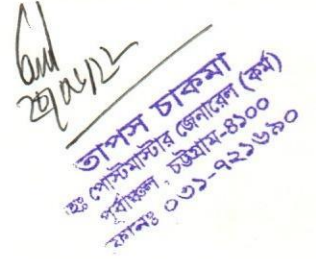 ২৮/০৮/২২
তাপস চাকমা
ডঃ পোস্টমাস্টার জেনারেল (কর্ম)
পূর্বাঞ্চল, চট্টগ্রাম-৪১০০
ফোনঃ ০৩১-৭২১৬৯০